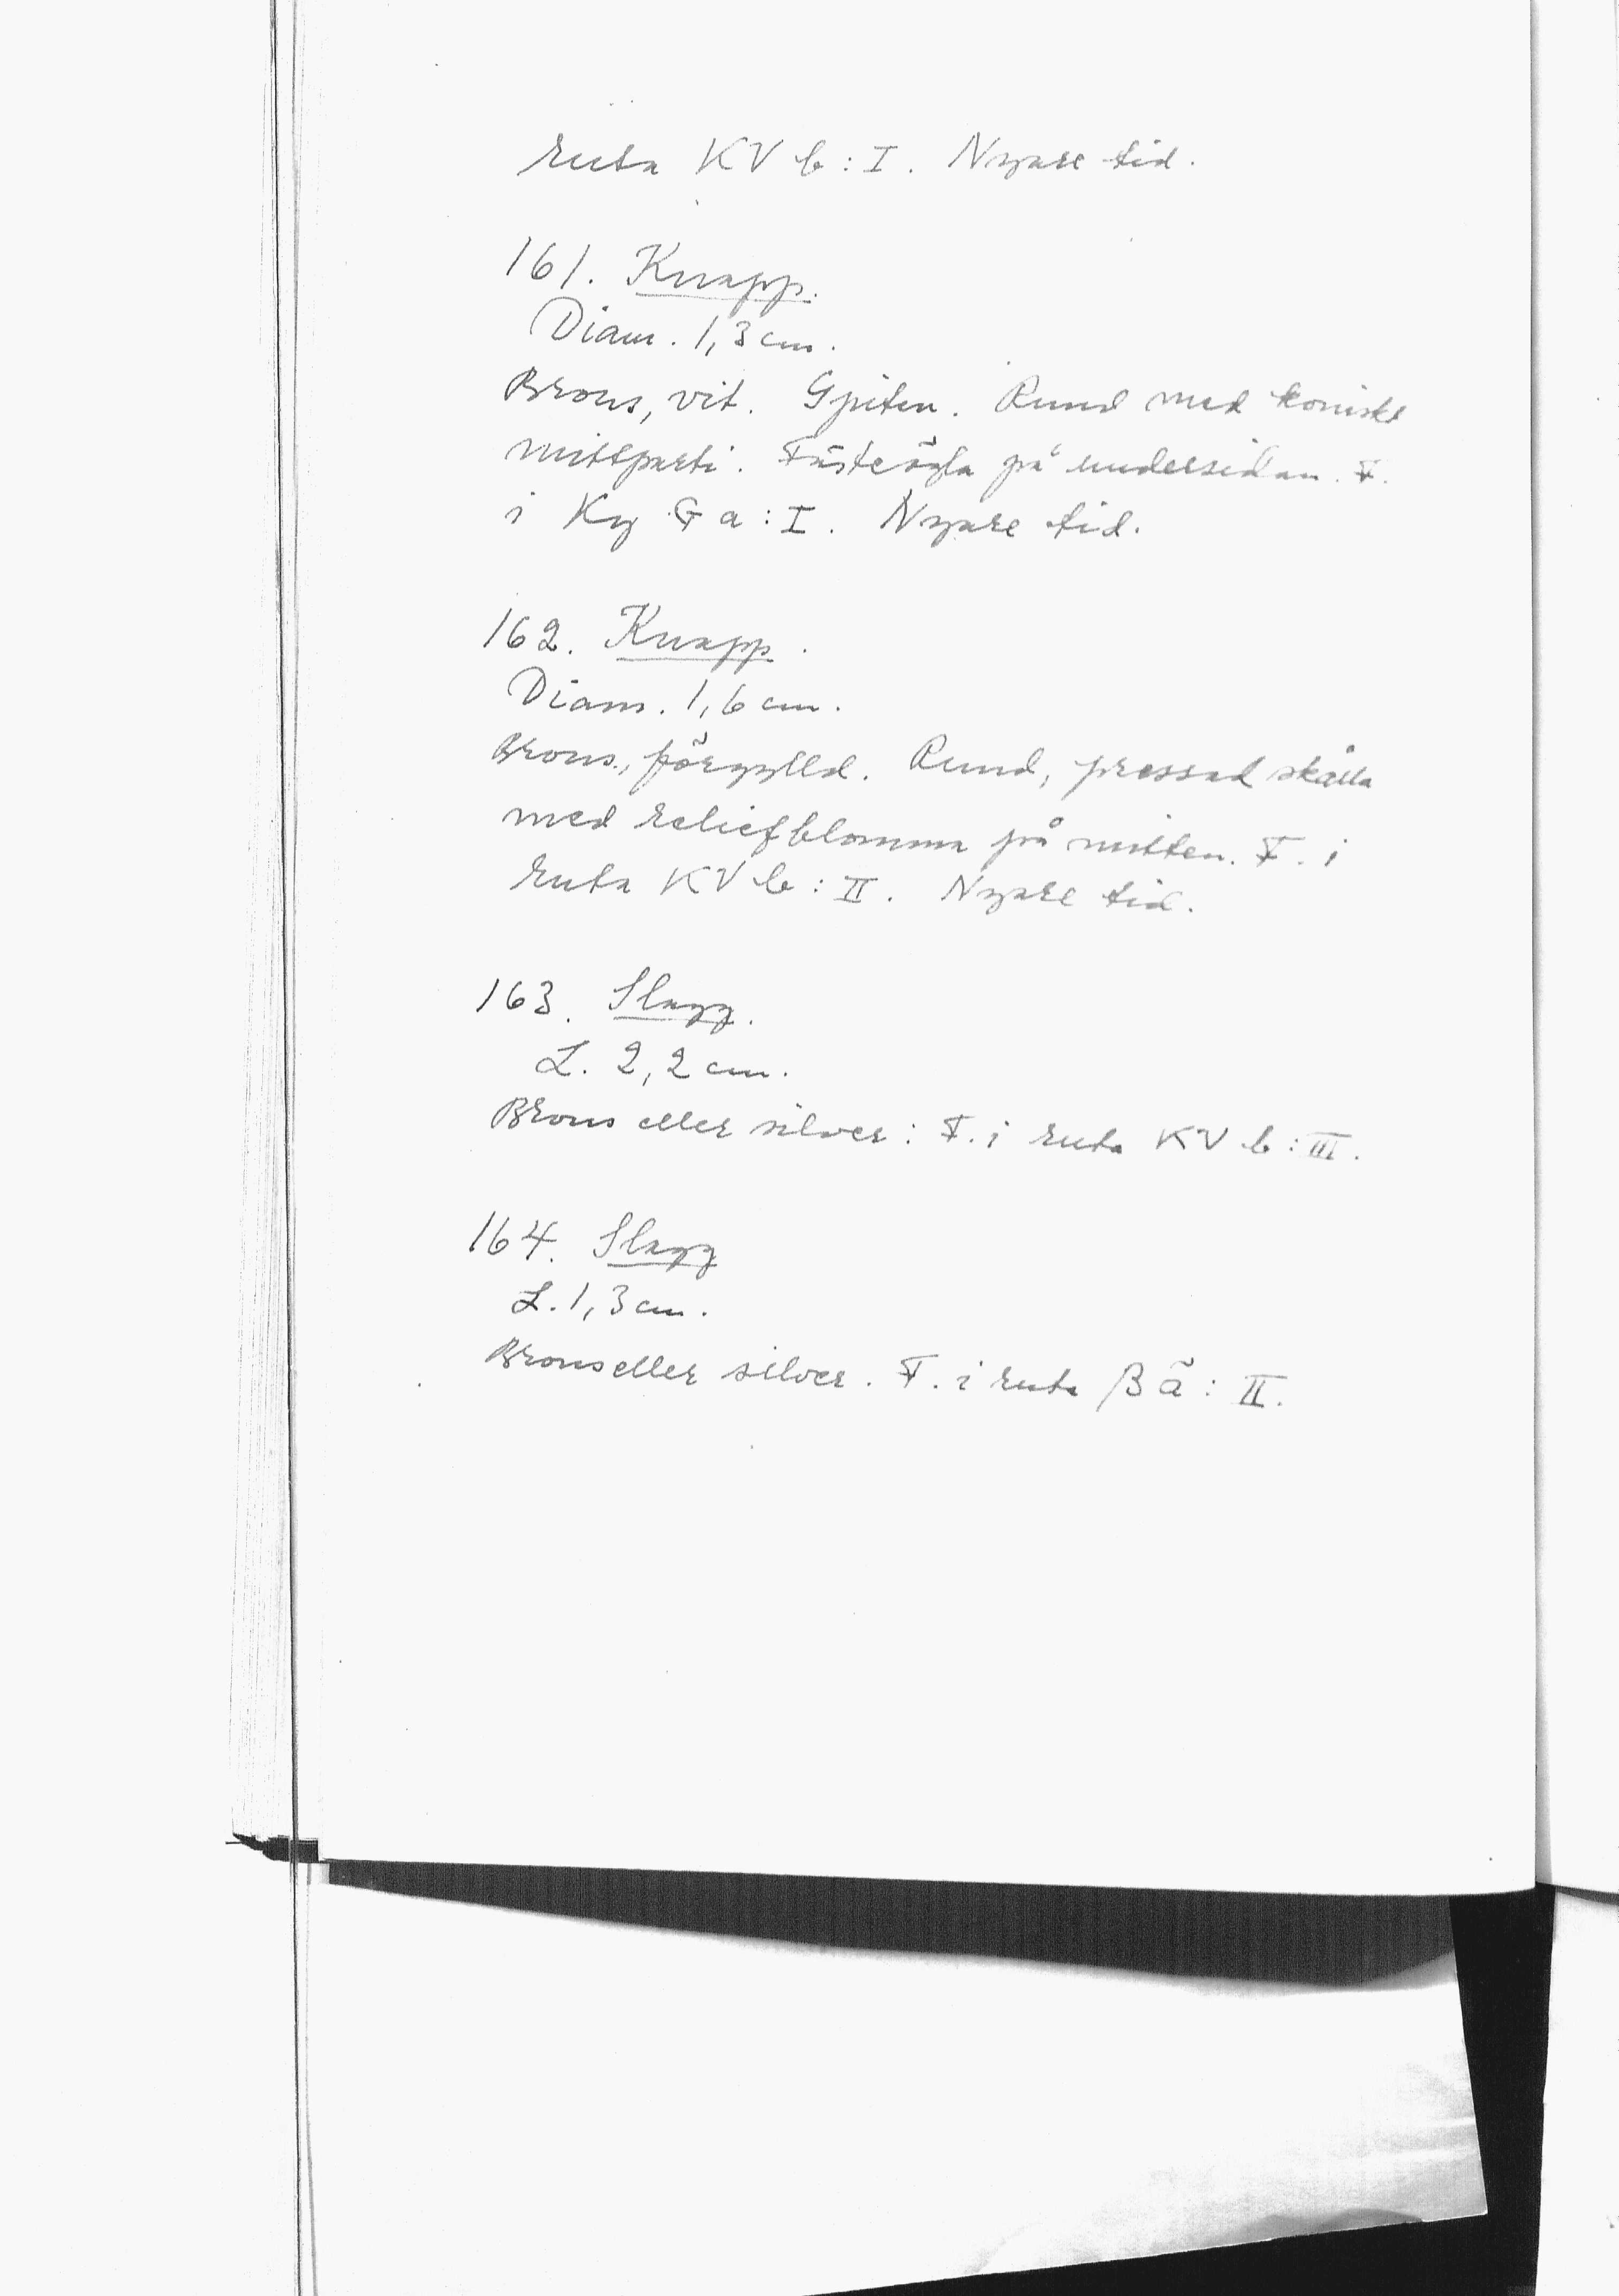 ruta KV b: I. Nyare tid.
161. Knapp.
Diam. 1,3 cm.
Brons, vit. Gjuten. Rund med koniskt
mittparti. Fästeögla på undersidan. F.
i Ky G a: I. Nyare tid.
162. Knapp.
Diam. 1,6 cm.
Brons, förgylld. Rund, pressad skålla
med reliefblomma på mitten. F. i
ruta KV b: II. Nyare tid.
163. Slagg.
L. 2,2 cm.
Brons eller silver: F. i ruta KV b: III.
164. Slagg
L. 1,3 cm.
Brons eller silver. F. i ruta β ä: II.